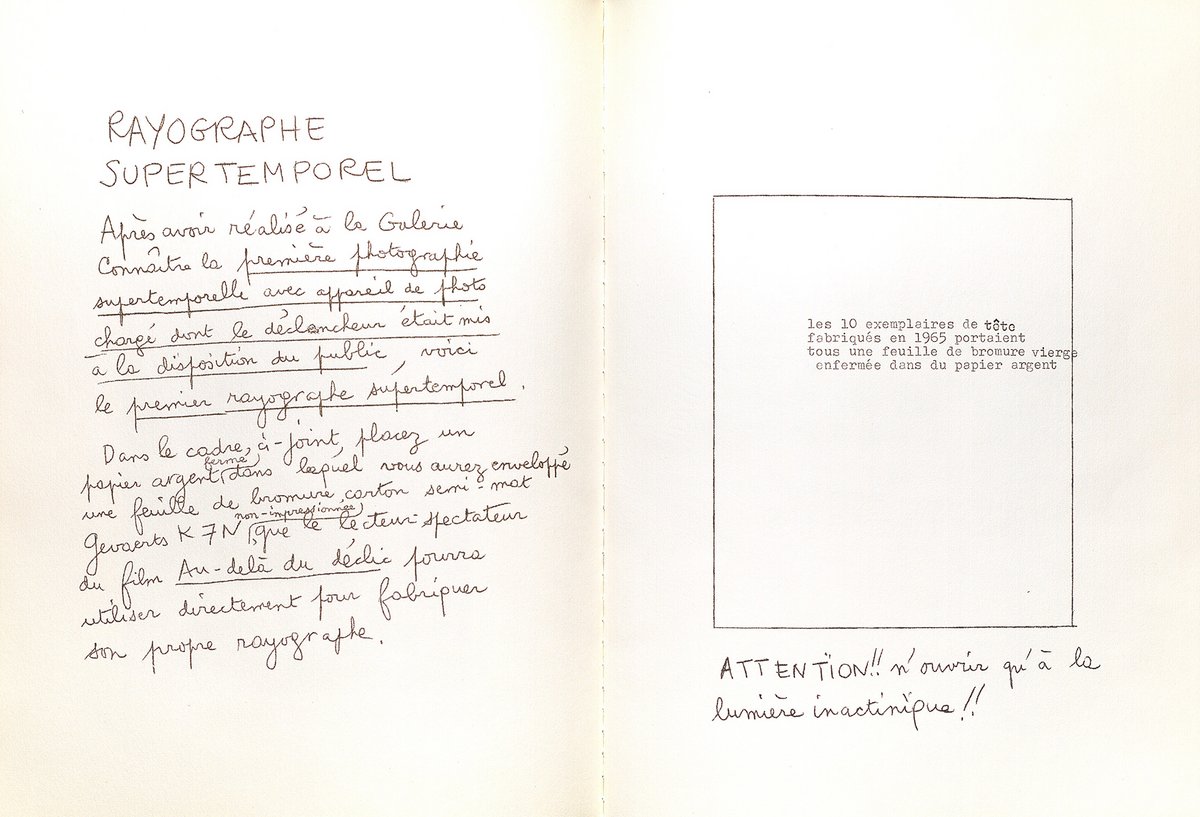 RAYOGRAPHE
SUPERTEMPOREL
Après avoir réalisé à la Galerie
Connaître la première photographie
supertemporelle avec appareil de photo
chargé dont le déclencheur était mis
à la disposition du public, voici
le premier rayographe supertemporel.
Dans le cadre, ci-joint, placez un
papier argent, fermé, dans lequel vous aurez enveloppé
une feuille de bromure, carton semi-mat
Gevaerts K 7 N, non-impressionnée, que le lecteur-spectateur
du film Au-delà du déclic pourra
utiliser directement pour fabriquer
son propre rayographe.
les 10 exemplaires de tôtô
fabriqués en 1965 portaient
tous une feuille de bromure vierge
enfermée dans du papier argent
ATTENTION!! n'ouvrir qu'à la
lumière inactinique!!